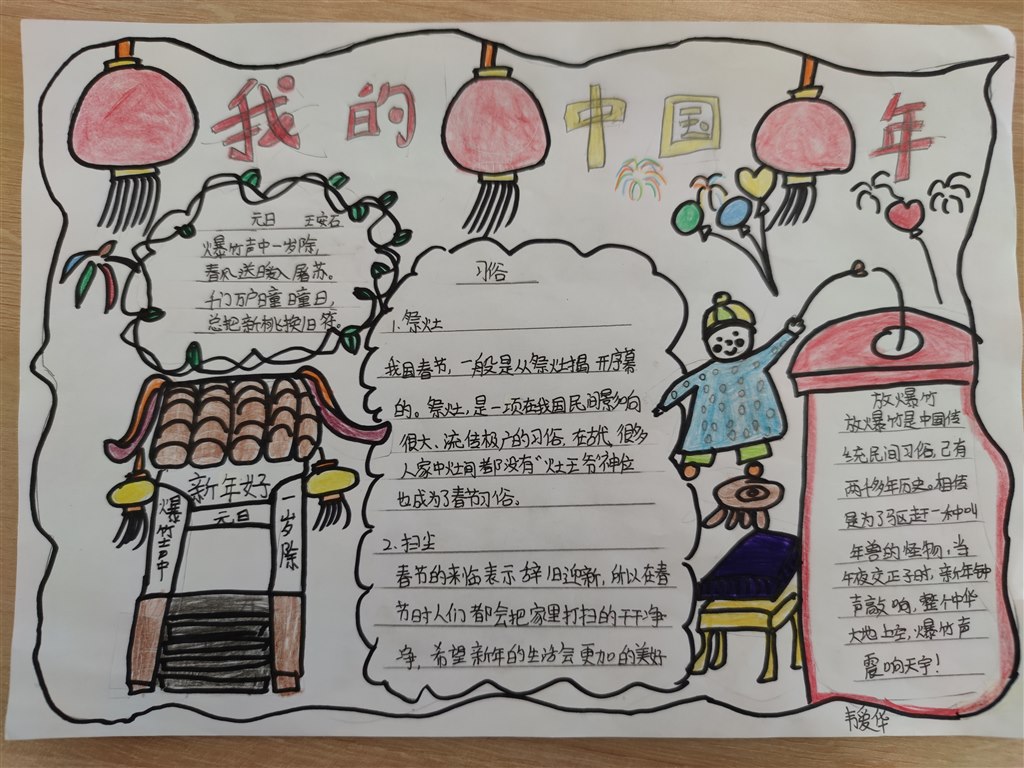 我的中国年
元日 王安石
爆竹声中一岁除，
春风送暖入屠苏。
千门万户瞳瞳日，
总把新桃换旧符。
新年好
元日
爆竹声中
一岁除
习俗
1. 祭灶
我国春节，一般是从祭灶揭开序幕
的。祭灶，是一项在我国民间影响
很大、流传极广的习俗。在古代，很多
人家中灶间都没有“灶王爷”神位
也成为了春节习俗。
2. 扫尘
春节的来临表示辞旧迎新，所以在春
节时人们都会把家里打扫的干干净
净，希望新年的生活会更加的美好
放爆竹
放爆竹是中国传
统民间习俗，已有
两千多年历史。相传
是为了驱赶一种叫
年兽的怪物，当
午夜交正子时，新年钟
声敲响，整个中华
大地上空，爆竹声
震响天宇！
韦爱华